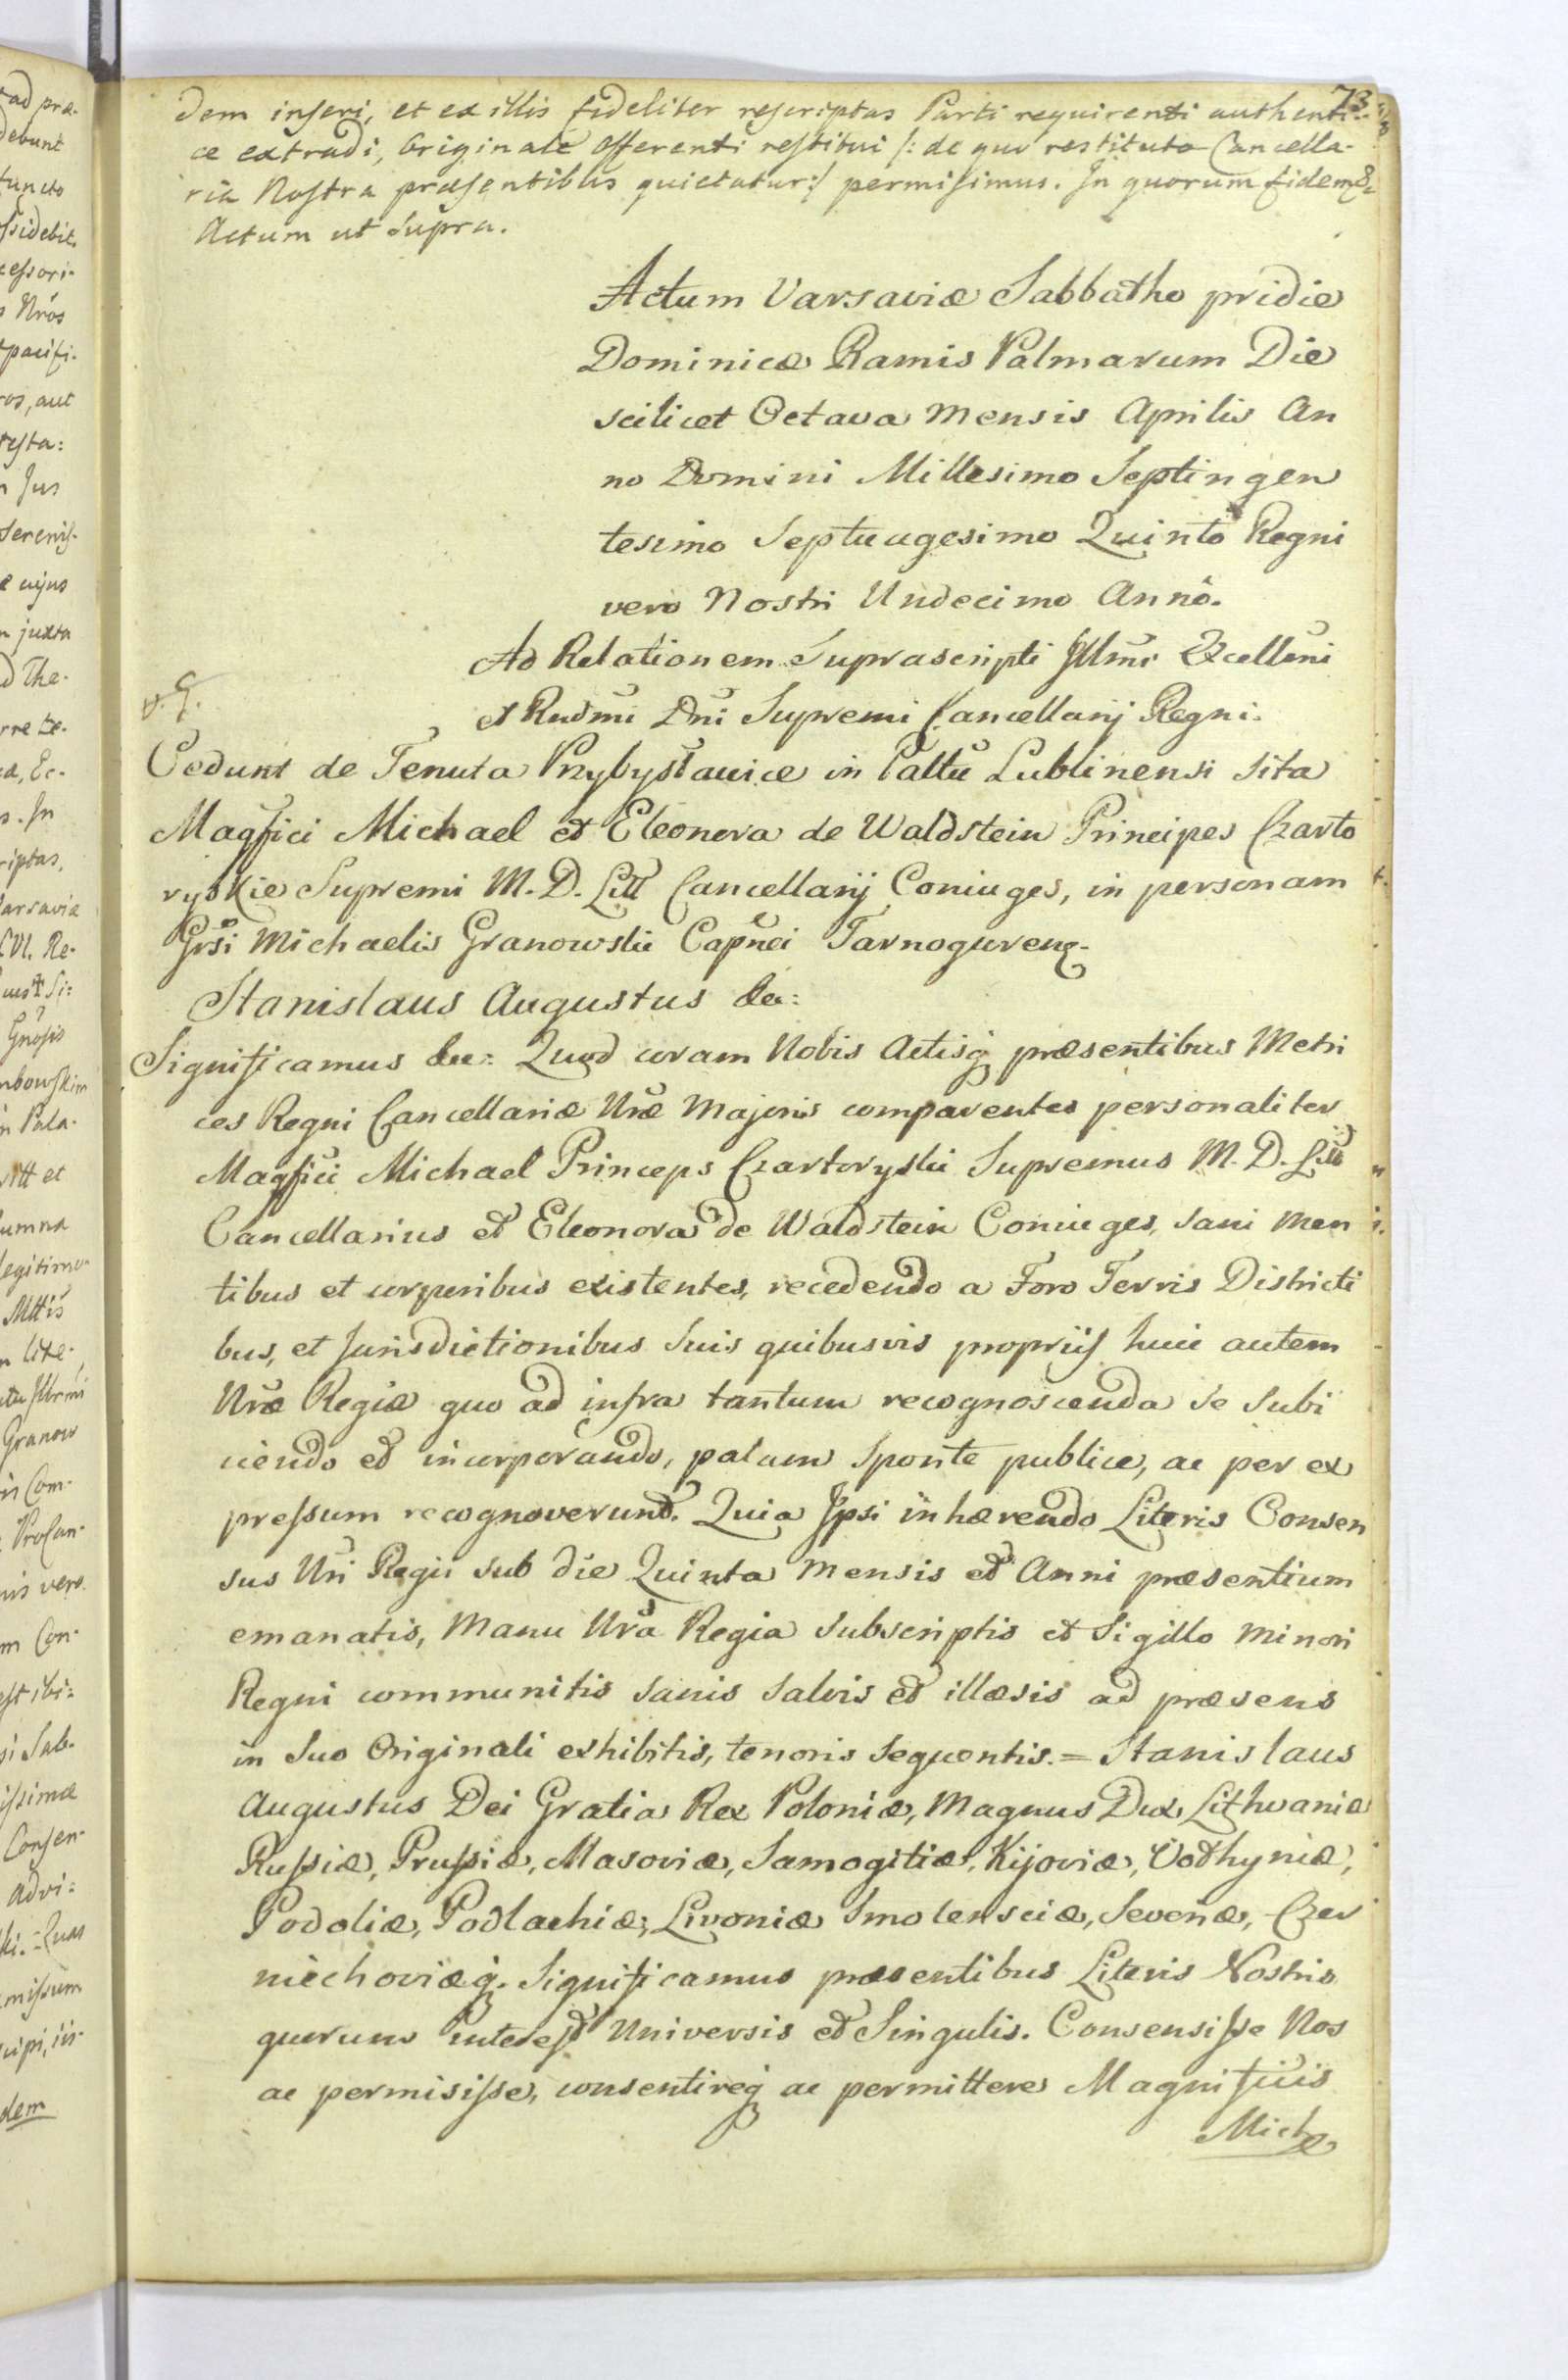 73
dem inseri, et ex illis fideliter rescriptas Parti requirenti authenti-
ce extradi, Originale Offerenti restitui /: de quo restituto Cancella-
ria Nostra præsentibus quietatur :/ permisimus. In quorum fidem &c
Actum ut Supra.
Actum Varsaviæ Sabbatho pridie
Dominicæ Ramis Palmarum Die
scilicet Octava Mensis Aprilis An
no Domini Millesimo Septingen
tesimo Septuagesimo Quinto Regni
vero Nostri Undecimo Annô.
Ad Relationem Suprascripti Illmi Excellmi
et Rndmi Dni Supremi Cancellarij Regni.
Cedunt de Tenuta Przybysławice in Palttu Lublinensi Sita
Magfici Michael et Eleonora de Waldstein Principes Czarto
ryskie Supremi M. D. Litt Cancellarij Coniuges, in personam
Grsi Michaelis Granowski Capnei Tarnogoren.
Stanislaus Augustus &a:
Significamus &a: Quod coram Nobis Actisq præsentibus Metri
ces Regni Cancellariæ Nræ Majoris comparentes personaliter
Magfici Michael Princeps Czartoryski Supremus M. D. Litt
Cancellarius et Eleonora de Waldstein Coniuges, sani Men
tibus et corporibus existentes, recedendo a Foro Terris Districti
bus, et Jurisdictionibus Suis quibusvis propriis huic autem
Nræ Regiæ quo ad infra tantum recognoscenda Se Subi
ciendo et incorporando, palam Sponte publice, ac per ex
pressum recognoverunt. Quia Ipsi inhærendo Literis Consen
sus Nri Regii sub die Quinta Mensis et Anni præsentium
emanatis, Manu Nra Regia Subscriptis et Sigillo Minori
Regni communitis Sanis Salvis et illæsis ad præsens
in Suo Originali exhibitis, tenoris Sequentis. = Stanislaus
Augustus Dei Gratia Rex Poloniæ, Magnus Dux Lithvaniæ
Russiæ, Prussiæ, Masoviæ, Samogitiæ, Kijoviæ, Vołhyniæ,
Podoliæ, Podlachiæ, Livoniæ Smolensciæ, Severiæ, Czer
niechoviæq. Significamus præsentibus Literis Nostris
quorum interest Universis et Singulis. Consensisse Nos
ac permisisse, consentireq ac permittere Magnificis
Mich